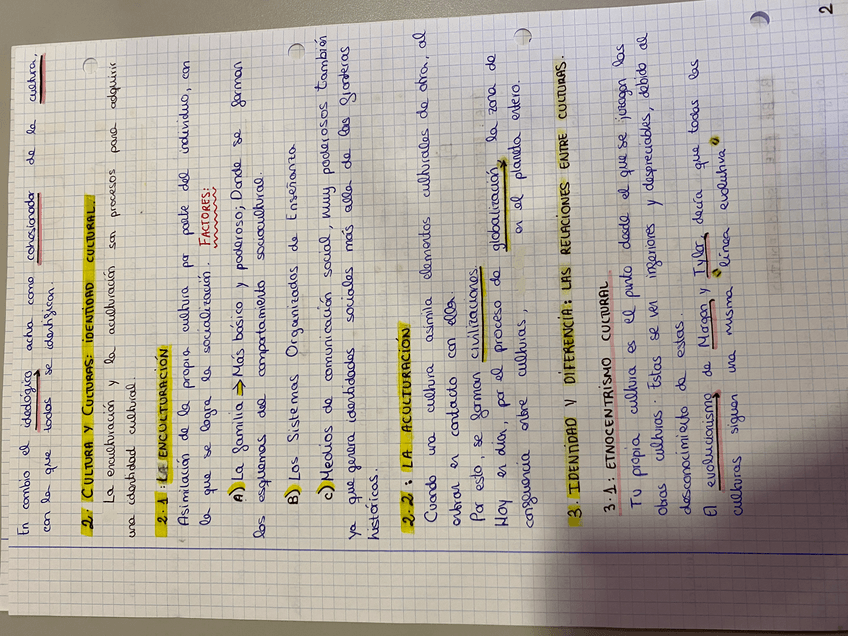 En cambio el ideológico actua como cohesionador de la cultura,
con la que todos se identifican.
2: CULTURA Y CULTURAS: IDENTIDAD CULTURAL.
La enculturación y la aculturación son procesos para adquirir
una identidad cultural.
2.1: LA ENCULTURACIÓN
Asimilación de la propia cultura por parte del individuo, con
la que se logra la socialización. FACTORES:
A) La familia => Más básico y poderoso; Donde se forman
los esquemas del comportamiento sociocultural.
B) Los Sistemas Organizados de Enseñanza
C) Medios de comunicación social, muy poderosos también
ya que genera identidades sociales más alla de las fronteras
históricas.
2.2: LA ACULTURACIÓN
Cuando una cultura asimila elementos culturales de otra, al
entrar en contacto con ella.
Por esto, se forman civilizaciones
Hoy en día, por el proceso de globalización, la zona de
congruencia entre culturas, en el planeta entero.
3. IDENTIDAD Y DIFERENCIA: LAS RELACIONES ENTRE CULTURAS.
3.1: ETNOCENTRISMO CULTURAL
Tu propia cultura es el punto desde el que se juzgan las
otras culturas. Estas se ven inferiores y despreciables, debido al
desconocimiento de estas.
El evolucionismo de Morgan y Tyler, decía que todas las
culturas siguen una misma línea evolutiva.
2